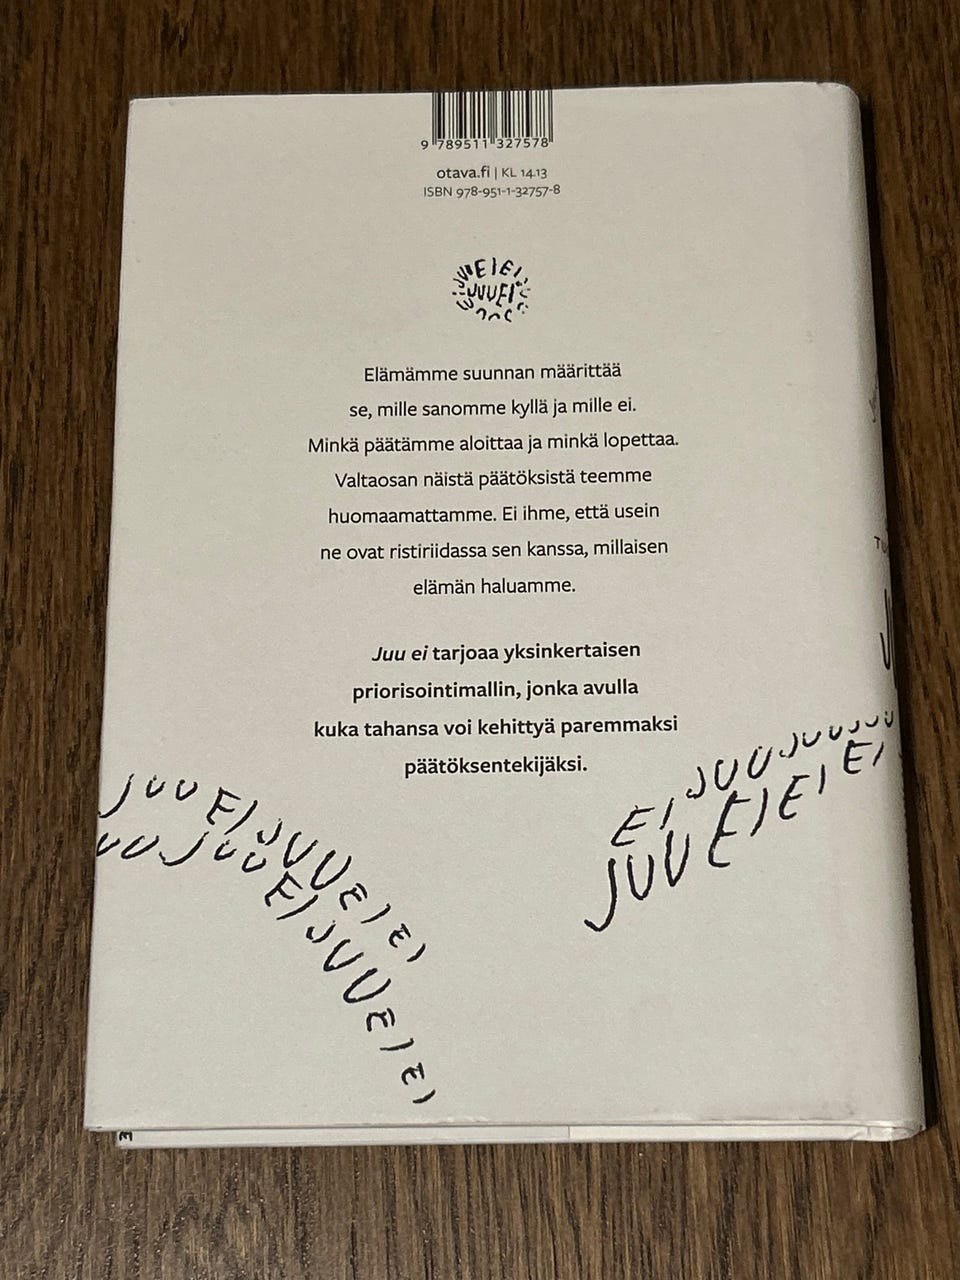 9 789511 327578
otava.fi | KL 14.13
ISBN 978-951-1-32757-8
JUU EI EI
JUU EI
Elämämme suunnan määrittää
se, mille sanomme kyllä ja mille ei.
Minkä päätämme aloittaa ja minkä lopettaa.
Valtaosan näistä päätöksistä teemme
huomaamattamme. Ei ihme, että usein
ne ovat ristiriidassa sen kanssa, millaisen
elämän haluamme.
Juu ei tarjoaa yksinkertaisen
priorisointimallin, jonka avulla
kuka tahansa voi kehittyä paremmaksi
päätöksentekijäksi.
JUU EI JUU EI EI
UU JUU EI JUU EI EI
EI JUU JUU JUU
JUU EI EI EI